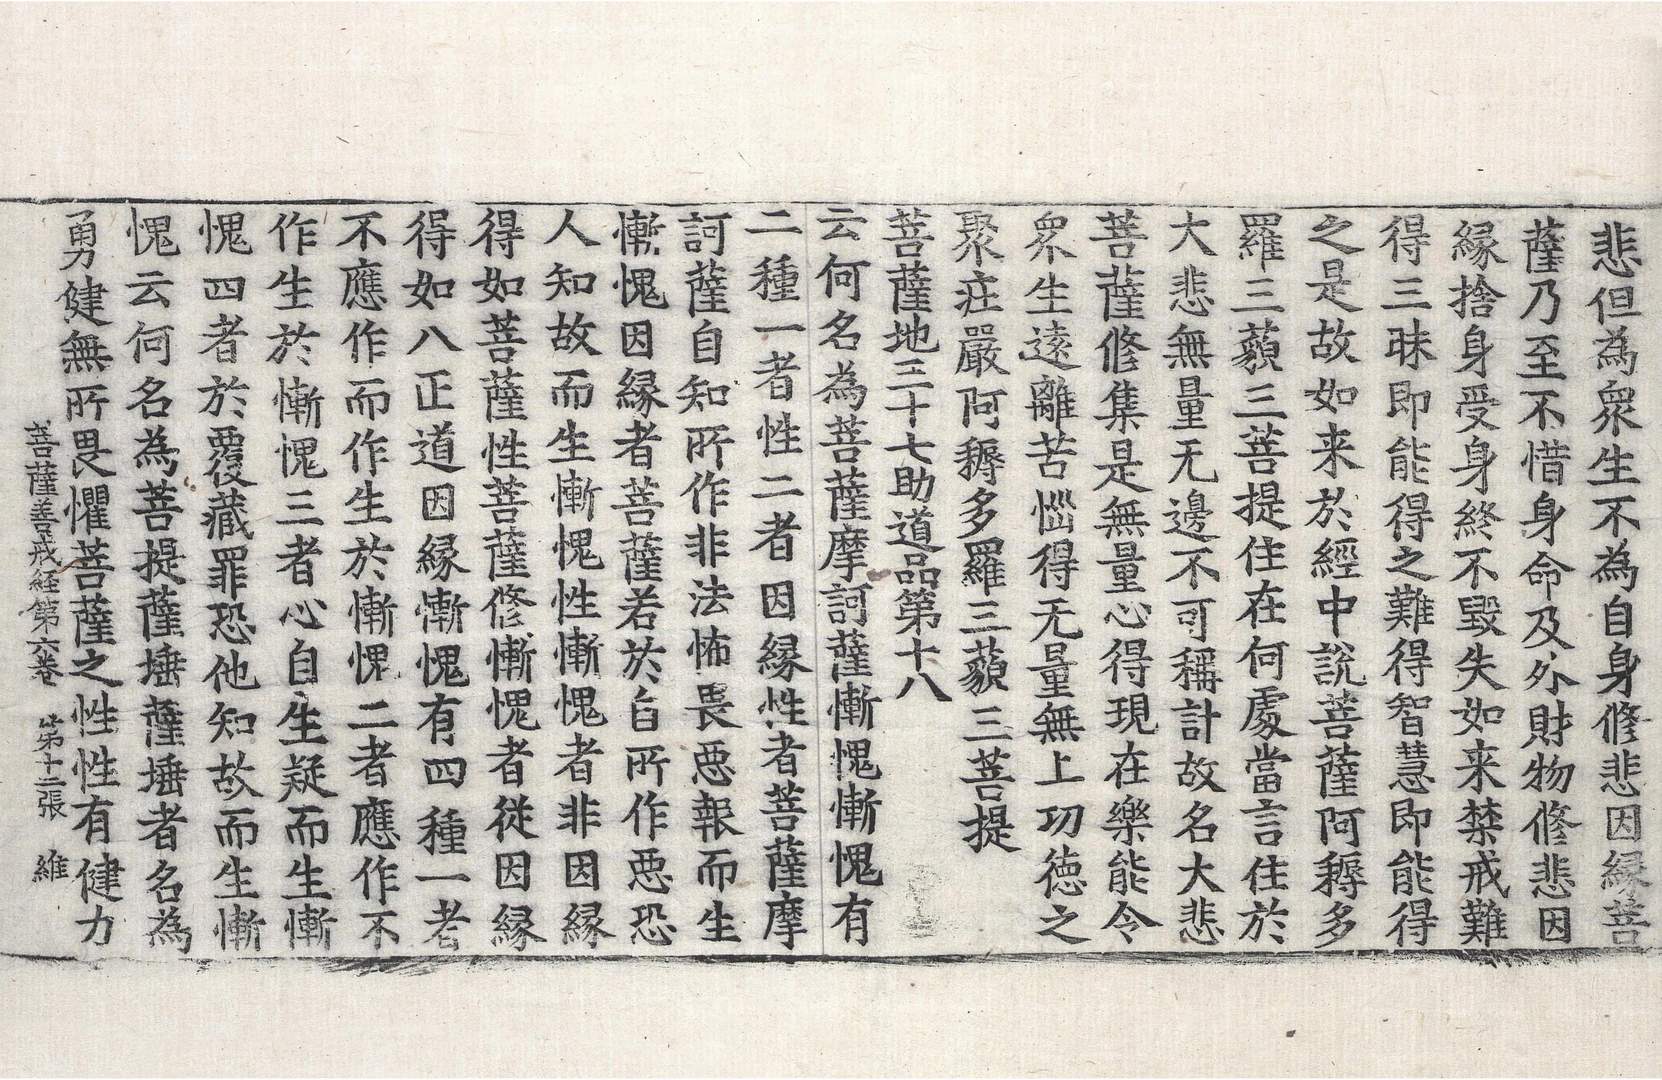 悲但為衆生不為自身修悲因縁菩
薩乃至不惜身命及外財物修悲因
縁捨身受身終不毀失如来禁戒難
得三昧即能得之難得智慧即能得
之是故如来於經中說菩薩阿耨多
羅三藐三菩提住在何處當言住於
大悲無量无邊不可稱計故名大悲
菩薩修集是無量心得現在樂能令
衆生遠離苦惱得无量無上功徳之
聚疘嚴阿耨多羅三藐三菩提
菩薩地三十七助道品第十八
云何名為菩薩摩訶薩慚愧慚愧有
二種一者性二者因縁性者菩薩摩
訶薩自知所作非法怖畏惡報而生
慚愧因縁者菩薩若於自所作惡恐
人知故而生慚愧性慚愧者非因縁
得如菩薩性菩薩修慚愧者從因縁
得如八正道因縁慚愧有四種一者
不應作而作生於慚愧二者應作不
作生於慚愧三者心自生疑而生慚
愧四者於覆藏罪恐他知故而生慚
愧云何名為菩提薩埵薩埵者名為
勇健無所畏懼菩薩之性性有健力
菩薩善戒経第六卷 第十二張 維